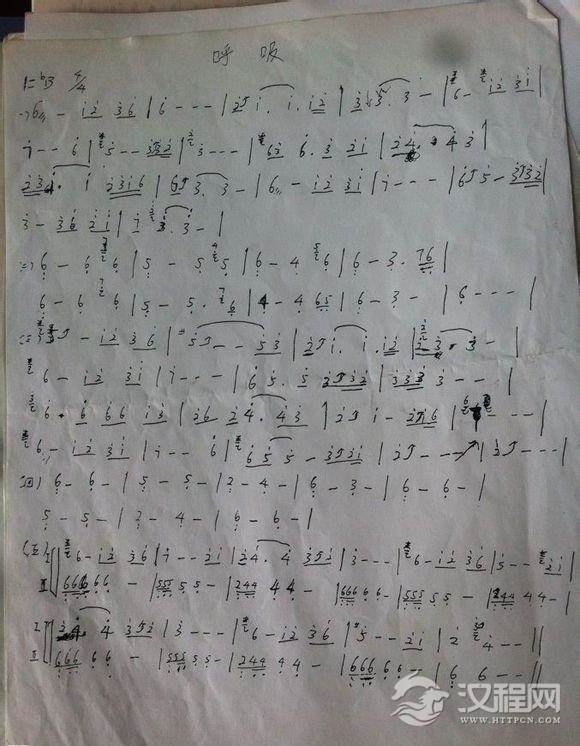 呼吸
1=ᵇB 4/4
(一) 6 - i 2 3 6 | 6 - - - | 2 5 i . i . i 2 | 3 3 . 3 - | 6 - i 2 3 i |
i - - 6 | 5 - - 3 5 3 2 | 3 - - - | 6 2 6 . 3 2 i | 2 4 . 4 3 |
2 3 . i 2 3 i 6 | 6 5 3 . 3 - | 6 - i 2 3 i | i - - - | 6 5 - 3 5 3 2 |
3 - 3 6 2 i | i 3 . 3 - |
(二) 6 - 6 6 | 5 - 5 5 | 6 - 4 6 | 6 - 3 . 7 6 |
6 - 6 6 | 5 - 5 . 6 | 4 - 4 6 5 | 6 - 3 - | 6 - - - |
(三) - i 2 3 6 | 5 - - 5 3 | 2 i . i . i 2 | 2 3 . 3 - |
6 - i 2 3 i | i - - - | 6 5 . 5 2 3 5 3 2 | 3 3 3 3 - - |
6 . 6 6 6 i 3 | 2 6 2 4 . 4 3 | 2 i - 2 i 6 | - - |
6 - i 2 3 i | i - - 6 | 6 5 5 - 3 5 3 i | 2 - - - | 2 - - |
(四) 6 - 6 - | 5 - 5 - | 2 - 4 - | 6 - 3 - | 6 - 6 - |
5 - 5 - | 2 - 4 - | 6 - 6 - |
(五) I 6 - i 2 3 6 | i - - 2 i | 2 4 . 4 3 5 2 | 3 - - - | 6 - i 2 3 6 | 5 - - 2 i |
II 6 6 6 6 6 - | 5 5 5 5 5 - | 2 4 4 4 4 - | 6 6 6 6 6 - | 5 5 5 5 5 - | 2 4 4 4 4 - |
I 2 4 . 4 3 5 2 | 3 - - - | 6 - i 2 3 6 | 5 - - 2 i | 2 4 - - ||
II 6 6 6 6 6 - | 5 5 5 5 5 - | 2 4 4 4 4 - | 6 6 6 6 6 - | 6 6 - - ||
汉程网
WWW.HTTPCN.COM